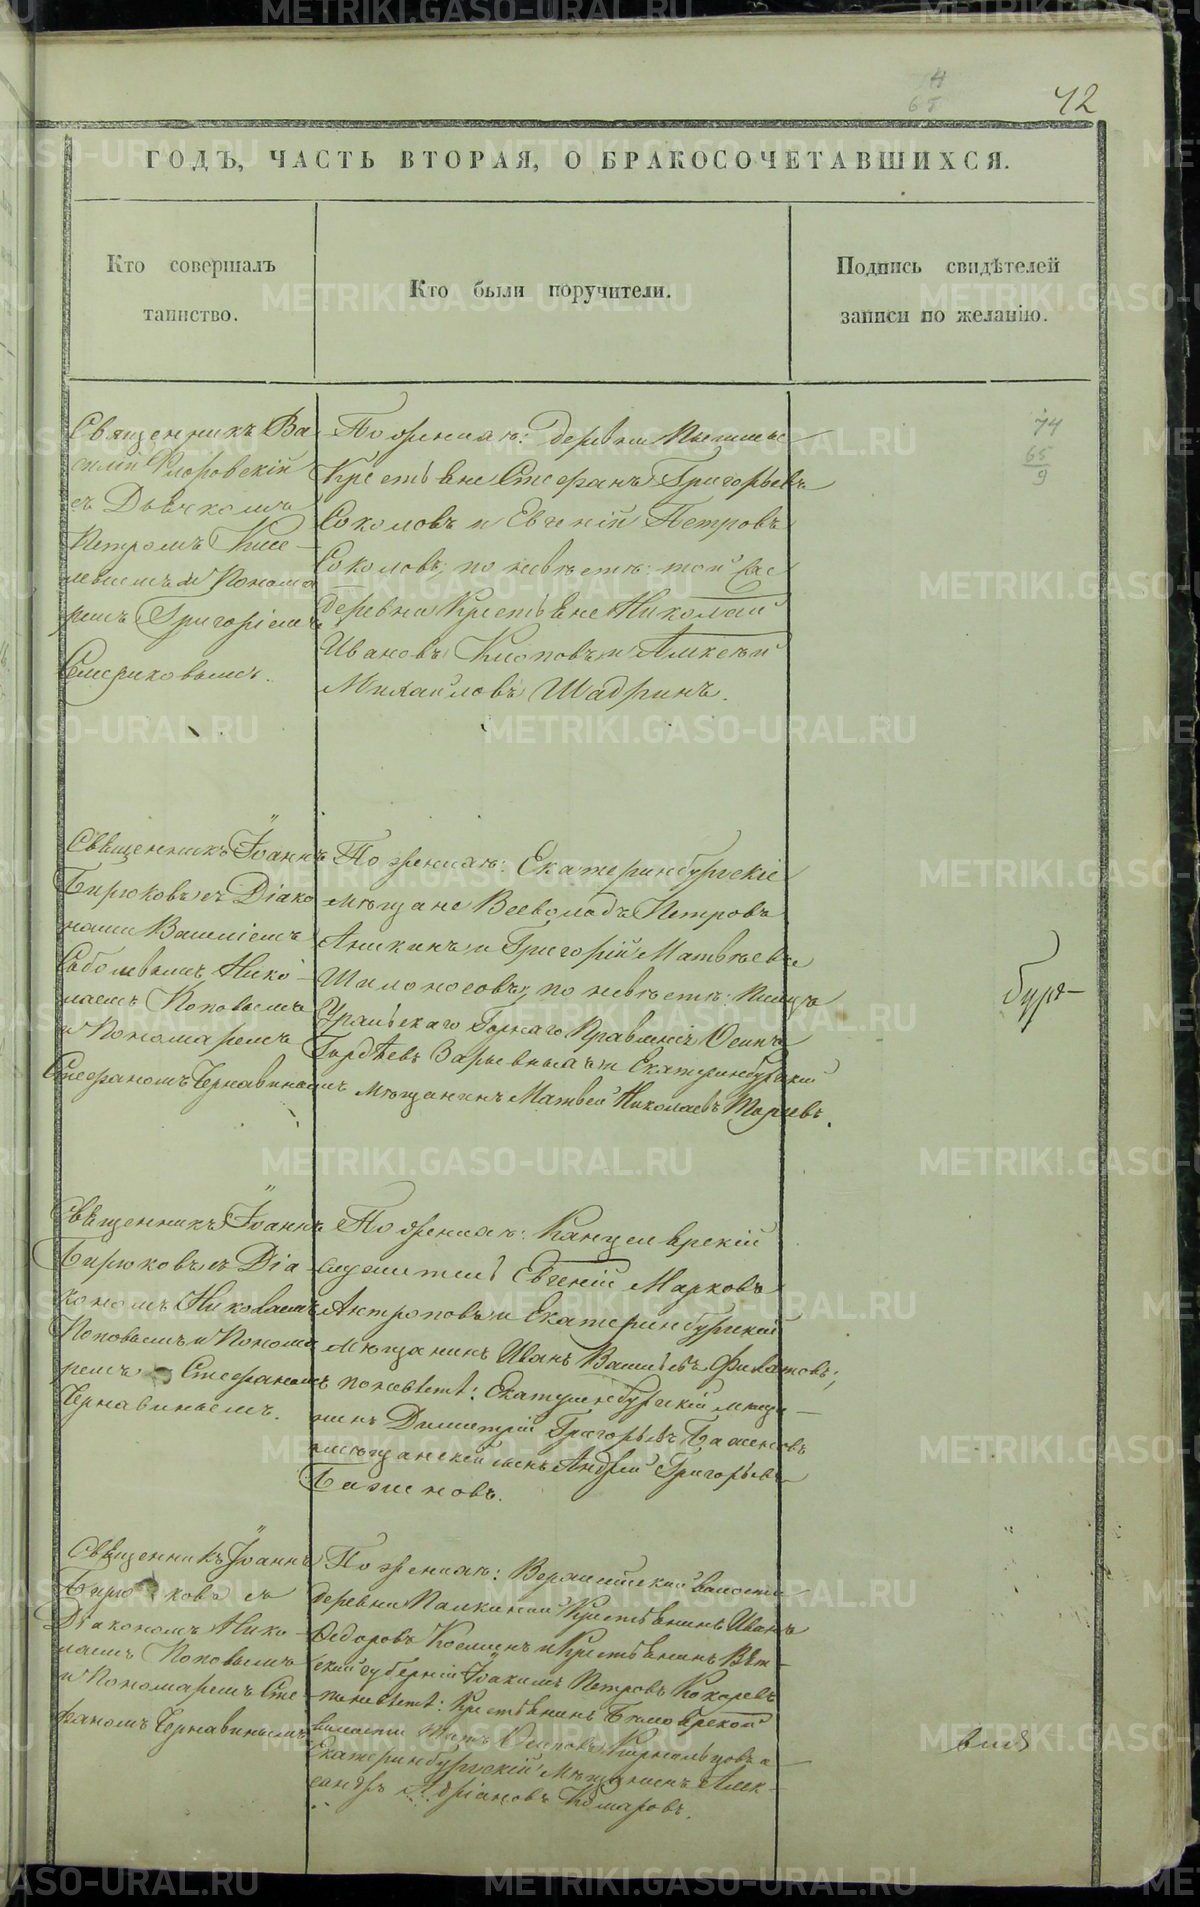 42
ГОДЪ, ЧАСТЬ ВТОРАЯ, О БРАКОСОЧЕТАВШИХСЯ.
Кто совершалъ
таинство.
Кто были поручители.
Подпись свидѣтелей
записи по желанію.
Священникъ Ва-
силій Флоровскій
съ Дьячкомъ
Петромъ Кисе-
левымъ и Понома
ремъ Григоріемъ
По женихѣ: деревни Пышмы
Крестьяне Стефанъ Григорьевъ
Соколовъ и Евгеній Петровъ
Соколовъ; по невѣстѣ: той же
деревни Крестьяне Николай
Ивановъ Клоповъ и Алексѣй
Михайловъ Шадринъ.
74
65
9
Священникъ Іоаннъ
Бирюковъ съ Діако
нами Василіемъ
Соболевымъ, Нико-
лаемъ Поповымъ
и Пономаремъ
Стефаномъ Чернавинымъ
По женихѣ: Екатеринбургскіе
мѣщане Всеволодъ Петровъ
Аникинъ и Григорій Матвѣевъ
Шилоносовъ; по невѣстѣ: Писецъ
Уральскаго Горнаго Правленія Осипъ
Гордѣевъ и Екатеринбургскій
мѣщанинъ Матвей Николаевъ
Священникъ Іоаннъ
Бирюковъ съ Діа-
кономъ Николаемъ
Поповымъ и Понома
ремъ Стефаномъ
Чернавинымъ.
По женихѣ: Канцелярскій
служитель Евгеній Марковъ
Антроповъ и Екатеринбургскій
мѣщанинъ Иванъ Васильевъ Филатовъ;
по невѣстѣ: Екатеринбургскій мѣща-
нинъ Димитрій Григорьевъ Баженовъ
и мѣщанскій сынъ Андрей Григорьевъ
Баженовъ.
Священникъ Іоаннъ
Бирюковъ съ
Діакономъ Нико-
лаемъ Поповымъ
и Пономаремъ Сте-
фаномъ Чернавинымъ
По женихѣ: волости
деревни Палкиной Крестьянинъ Иванъ
Ѳедоровъ и Крестьянинъ Вят-
ской губерніи Іоакимъ Петровъ Кокаревъ
по невѣстѣ: Крестьянинъ
волости Осиповъ и
Екатеринбургскій Мѣщанинъ Алек-
сандръ Адріановъ Комаровъ.